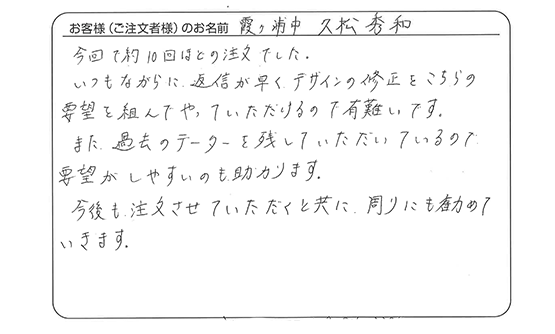 お客様(ご注文者様)のお名前 霞ヶ浦中 久松秀和
今回で約10回ほどの注文でした。
いつもながらに、返信が早く、デザインの修正をこちらの
要望を組んでやっていただけるので有難いです。
また、過去のデーターを残していただいているので
要望がしやすいのも助かります。
今後も、注文させていただくと共に、周りにも勧めて
いきます。